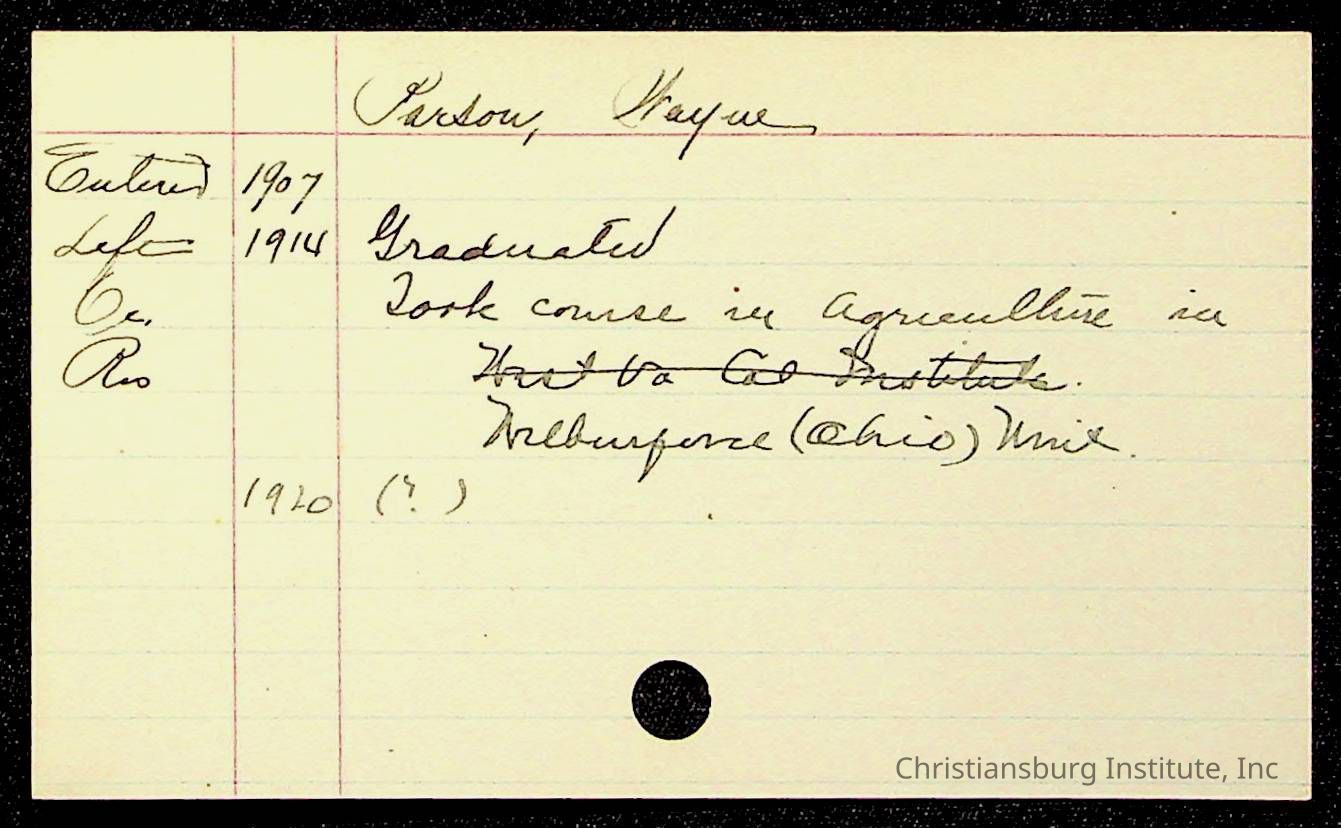 Parson, Wayne
Entered 1907
Left 1914 Graduated
Oc. Took course in Agriculture in
Res West Va Col Institute.
Wilburforce (Ohio) Unit.
1920 (?)
Christiansburg Institute, Inc